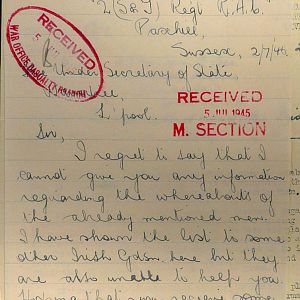 2 (S&T) Regt R.A.C.
Paxhill,
Sussex, 2/7/45
RECEIVED
WAR OFFICE
Under Secretary of State,
L'pool.
RECEIVED
5 JUL 1945
M. SECTION
Sir,
I regret to say that I
cannot give you any information
reguarding the whereabouts of
the already mentioned men.
I have shown the list to some
other Irish Gdsn. here but they
are also unable to help you.
that you receive some